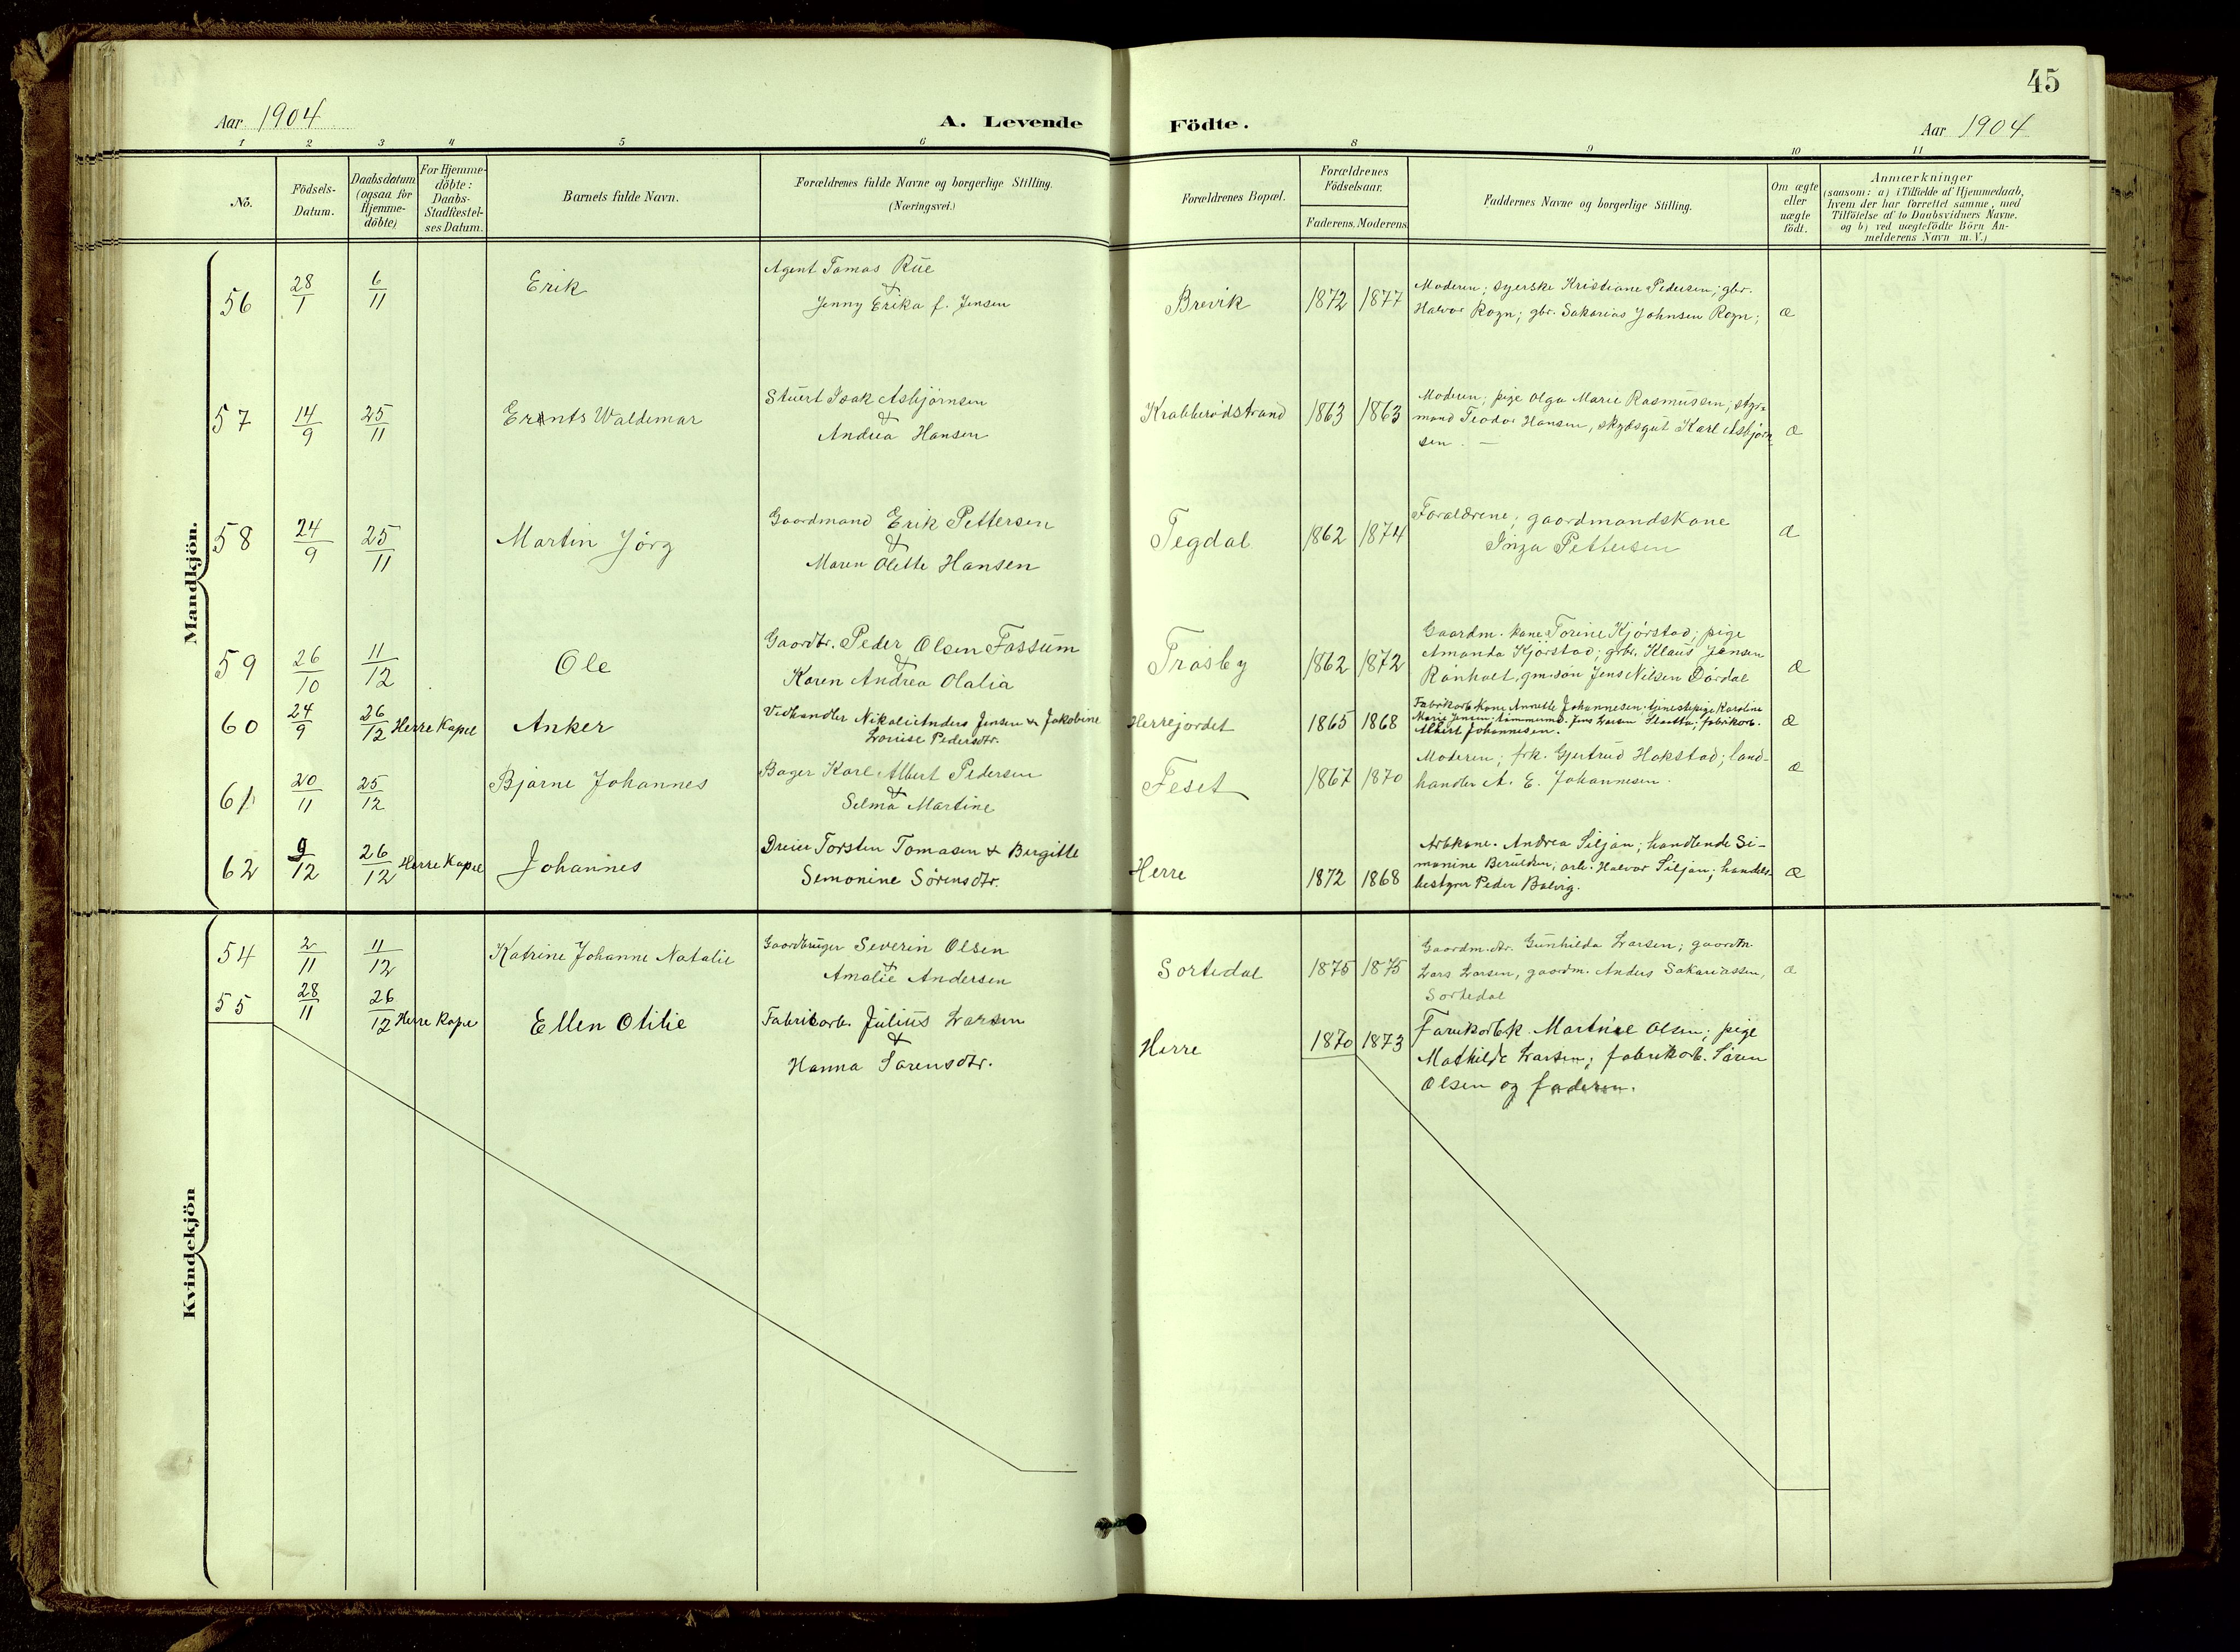 45
Aar 1904
A. Levende Födte.
Aar 1904
1 2 3 4 5 6 8 9 10 11
No.
Födsels-
Datum.
Daabsdatum
(ogsaa for
Hjemme-
döbte)
For Hjemme-
döbte:
Daabs-
Stadfæstel-
ses Datum.
Barnets fulde Navn.
Forældrenes fulde Navne og borgerlige Stilling.
(Næringsvei.)
Forældrenes Bopæl.
Forældrenes
Födselsaar.
Faderens. Moderens.
Faddernes Navne og borgerlige Stilling.
Om ægte
eller
uægte
födt.
Anmærkninger
(saasom: a) i Tilfælde af Hjemmedaab,
hvem der har forrettet samme, med
Tilföielse af to Daabsvidners Navne.
og b) ved uægtefödte Börn An-
melderens Navn m.V.)
Mandkjön.
56 28/1 6/11 Erik
Agent Tomas Rue
&
Jenny Erika f. Jensen
Brevik 1872 1877
Moderen; syerske Kristiane Pedersen; gbr.
Halvor Rogn; gbr. Sakarias Johnsen Rogn;
æ
57 14/9 25/11 Erants Waldemar
Stuert Isak Asbjörnsen
&
Andrea Hansen
Krabberødstrand 1863 1863
Moderen; pige Olga Marie Rasmussen; styr-
mand Teodor Hansen, skydsgut Karl Asbjörn-
sen. —
æ
58 24/9 25/11 Martin Jörg
Gaardmand Erik Pettersen
&
Maren Olette Hansen
Tegdal 1862 1874
Forældrene; gaardmandskone
Inga Pettersen
æ
59 26/10 11/12 Ole
Gaardbr. Peder Olsen Fossum
&
Karen Andrea Olalia
Traasby 1862 1872
Gaardm. kone Torine Kjörstad; pige
Amanda Kjörstad; grbr. Klaus Jensen
Rönholt, gm.sön Jens Nilsen Dördal
æ
60 24/9 26/12 Herre Kapel Anker
Vedhandler Nikolai Anders Jensen & Jakobine
Lovise Pedersdtr.
Herrejordet 1865 1868
Fabrikarb. kone Annette Johannesen; tjenestepige Karoline
Marie Jensen; tömmerm. Jens Larsen Slaatta; fabrikarb.
Albert Johannesen.
æ
61 20/11 25/12 Bjarne Johannes
Bager Karl Albert Pedersen
&
Selma Martine
Feset 1867 1870
Moderen; frk. Gjertrud Hakstad; land-
handler A. E. Johannesen.
æ
62 9/12 26/12 Herre Kapel Johannes
Dreier Torsten Tomasen & Birgitte
Semonine Sörensdtr.
Herre 1872 1868
Arb.kone. Andrea Siljan; handlende Si-
monine Berulsen; arb. Halvor Siljan; handels-
bestyrer Peder Bolvig.
æ
Kvindekjön
54 2/11 11/12 Katrine Johanne Natalie
Gaardbruger Severin Olsen
&
Amalie Andersen
Sortedal 1875 1875
Gaardm.dtr. Gunhilda Larsen; gaardm.
Lars Larsen, gaardm. Anders Sakariassen,
Sortedal
æ
55 28/11 26/12 Herre Kape Ellen Otilie
Fabrikarb. Julius Larsen
&
Hanna Sørensdtr.
Herre 1870 1873
Farikarb.k. Martine Olsen; pige
Mathilde Larsen; fabrikarb. Sören
Olsen og faderen.